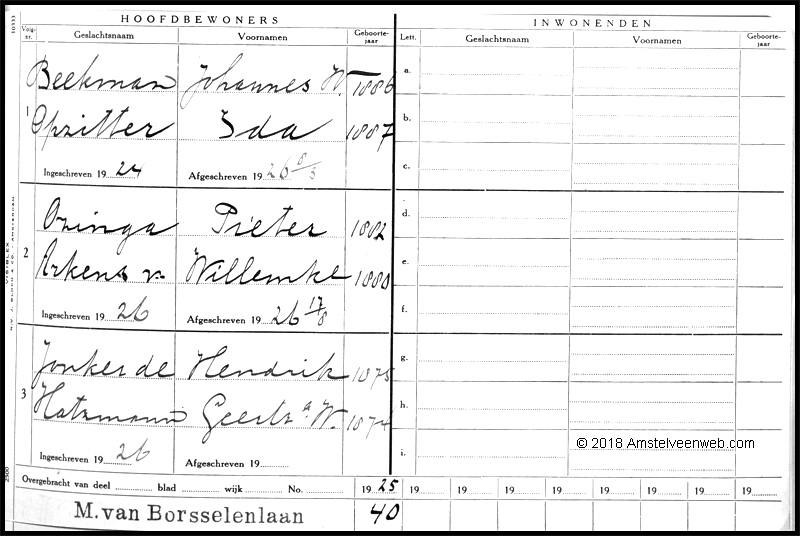 HOOFDBEWONERS INWONENDEN
Volg-nr. Geslachtsnaam Voornamen Geboorte-jaar Lett. Geslachtsnaam Voornamen Geboorte-jaar
Beekman Johannes W. 1886 a.
1 Opzitter Ida 1887 b.
Ingeschreven 19 24 Afgeschreven 19 26 8/3 c.
Oringa Pieter 1882 d.
2 Arkens v. Willemke 1880 e.
Ingeschreven 19 26 Afgeschreven 19 26 17/8 f.
Jonker de Hendrik 1875 g.
3 Hatzmann Geertr.a W. 1874 h.
Ingeschreven 19 26 Afgeschreven 19 i.
© 2018 Amstelveenweb.com
Overgebracht van deel blad wijk No. 19 25 19 19 19 19 19 19 19 19
M. van Borsselenlaan 40
10333
2500